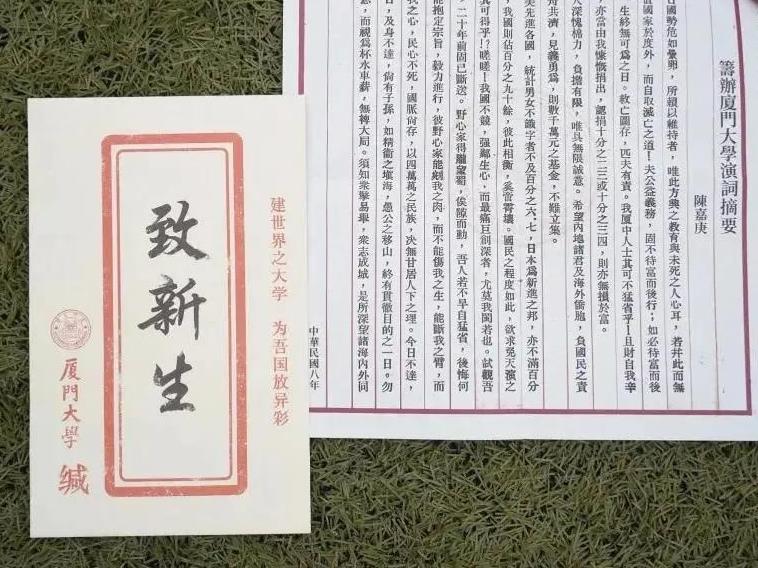 籌辦廈門大學演詞摘要
陳嘉庚
日國勢危如曡卵,所賴以維持者,唯此方興之教育與未死之人心耳,若并此而無
國家於度外,而自取滅亡之道!夫公益義務,固不待富而後行;如必待富而後
生終無可為之日。救亡圖存,匹夫有責。我廈中人士其可不猛省乎!且財自我辛
亦當由我慷慨捐出,認捐十分之二三或十分之三四,則亦無損於富。
人深愧棉力,負擔有限,唯具無限誠意。希望內地諸君及海外僑胞,負國民之責
舟共濟,見義勇為,則數千萬元之基金,不難立集。
美先進各國,統計男女不識字者不及百分之六、七,日本為新進之邦,亦不滿百分
我國則佔百分之九十餘,彼此相衡,奚啻霄壤。國民之程度如此,欲求免天演之
其可得乎!?嗟嗟!我國不競,強鄰生心,而最痛巨創深者,尤莫我閩若也。試觀吾
二十年前固已斷送。野心家得隴望蜀,俟隙而動,吾人若不早自猛省,後悔何
能抱定宗旨,毅力進行,彼野心家能剜我之肉,而不能傷我之生,能斷我之臂,而
我之心,民心不死,國脈尚存,以四萬萬之民族,決無甘居人下之理。今日不達,
日,及身不達,尚有子孫,如精衛之填海,愚公之移山,終有貫徹目的之一日。勿
志,而視為杯水車薪,無裨大局。須知眾擎易舉,眾志成城,是所深望諸海內外同
中華民國八年
建世界之大学 为吾国放异彩
致新生
厦门大學 缄